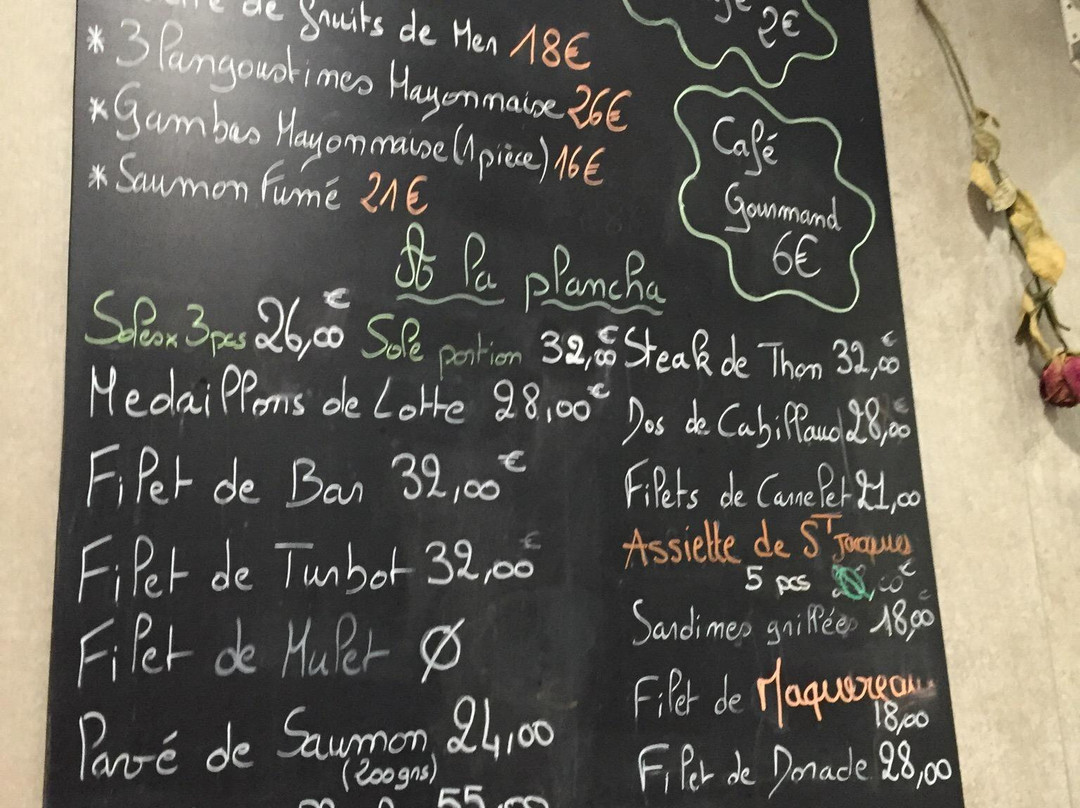 de fruits de Mer 18€
* 3 Langoustines Mayonnaise 26€
* Gambas Mayonnaise (1 pièce) 16€
* Saumon Fumé 21€
2€
Café
Gourmand
6€
A la plancha
Soles x 3 pcs 26,00€
Sole portion 32,00€
Medaillons de Lotte 28,00€
Filet de Bar 32,00€
Filet de Turbot 32,00€
Filet de Mulet Ø
Pavé de Saumon 24,00
(200grs)
55,00
Steak de Thon 32,00€
Dos de Cabillaud 28,00€
Filets de Carrelet 21,00
Assiette de St Jacques
5 pcs
Sardines grillées 18,00€
Filet de Maquereau
18,00
Filet de Dorade 28,00